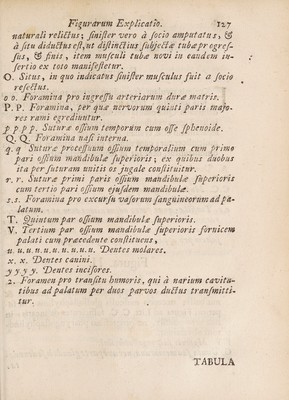 Figurarum Explicatio. 127
naturali relictus; sinister vero à socio amputatus, &
à situ diductus est, ut distinctius subjectæ tubæ progres-
sus, & finis, item musculi tubæ novi in eandem in-
sertio ex toto manifestetur.
O. Situs, in quo indicatus sinister musculus fuit a socio
resectus.
o o. Foramina pro ingressu arteriarum duræ matris.
P. P. Foramina, per quæ nervorum quinti paris majo-
res rami egrediuntur.
p p p p. Suturæ ossium temporum cum osse sphenoide.
Q. Q. Foramina nasi interna.
q. q Suturæ processuum ossium temporalium cum primo
pari ossium mandibulæ superioris; ex quibus duobus
ita per suturam unitis os jugale constituitur.
r. r. Suturæ primi paris ossium mandibulæ superioris
cum tertio pari ossium ejusdem mandibulæ.
s. s. Foramina pro excursu vasorum sanguineorum ad pa-
latum.
T. Quintum par ossium mandibulæ superioris.
V. Tertium par ossium mandibulæ superioris fornicem
palati cum præcedente constituens,
u. u. u. u. u. u. u. u. u. Dentes molares.
x. x. Dentes canini.
y y y y. Dentes incisores.
2. Foramen pro transitu humoris, qui à narium cavita-
tibus ad palatum per duos parvos ductus transmitti-
tur.
TABULA